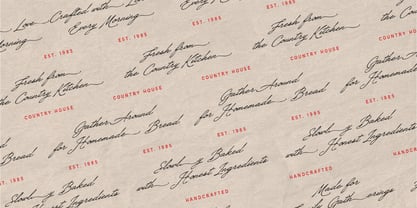 Love Crafted with Love
Every Morning
EST. 1985
Fresh from
the Country Kitchen
COUNTRY HOUSE
EST. 1985
Fresh from
the Country Kitchen
COUNTRY HOUSE
Gather Around
for Homemade Bread
EST. 1985
Fresh from
the Country Kitchen
COUNTRY HOUSE
Gather Around
for Homemade Bread
EST. 1985
Slowly Baked
with Honest Ingredients
HANDCRAFTED
Gather Around
for Homemade Bread
EST. 1985
Slowly Baked
with Honest Ingredients
Bread
EST. 1985
Slowly Baked
with Honest Ingredients
HANDCRAFTED
Made for